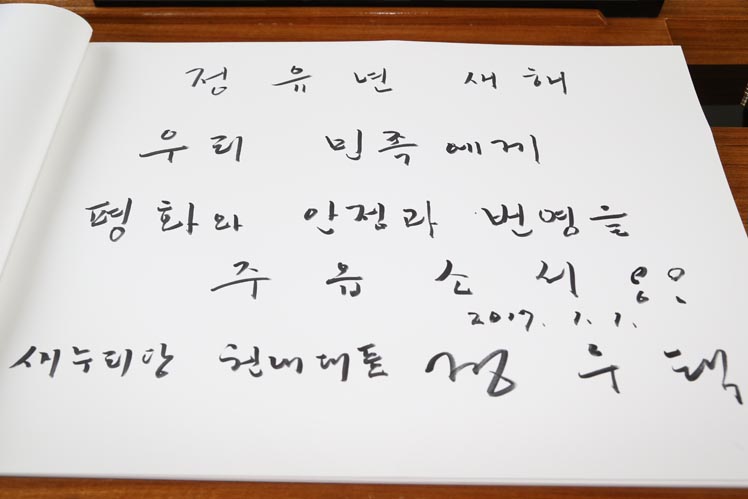 정유년 새해
우리 민족에게
평화와 안정과 번영을
주옵소서
2017. 1. 1.
새누리당 원내대표 정우택